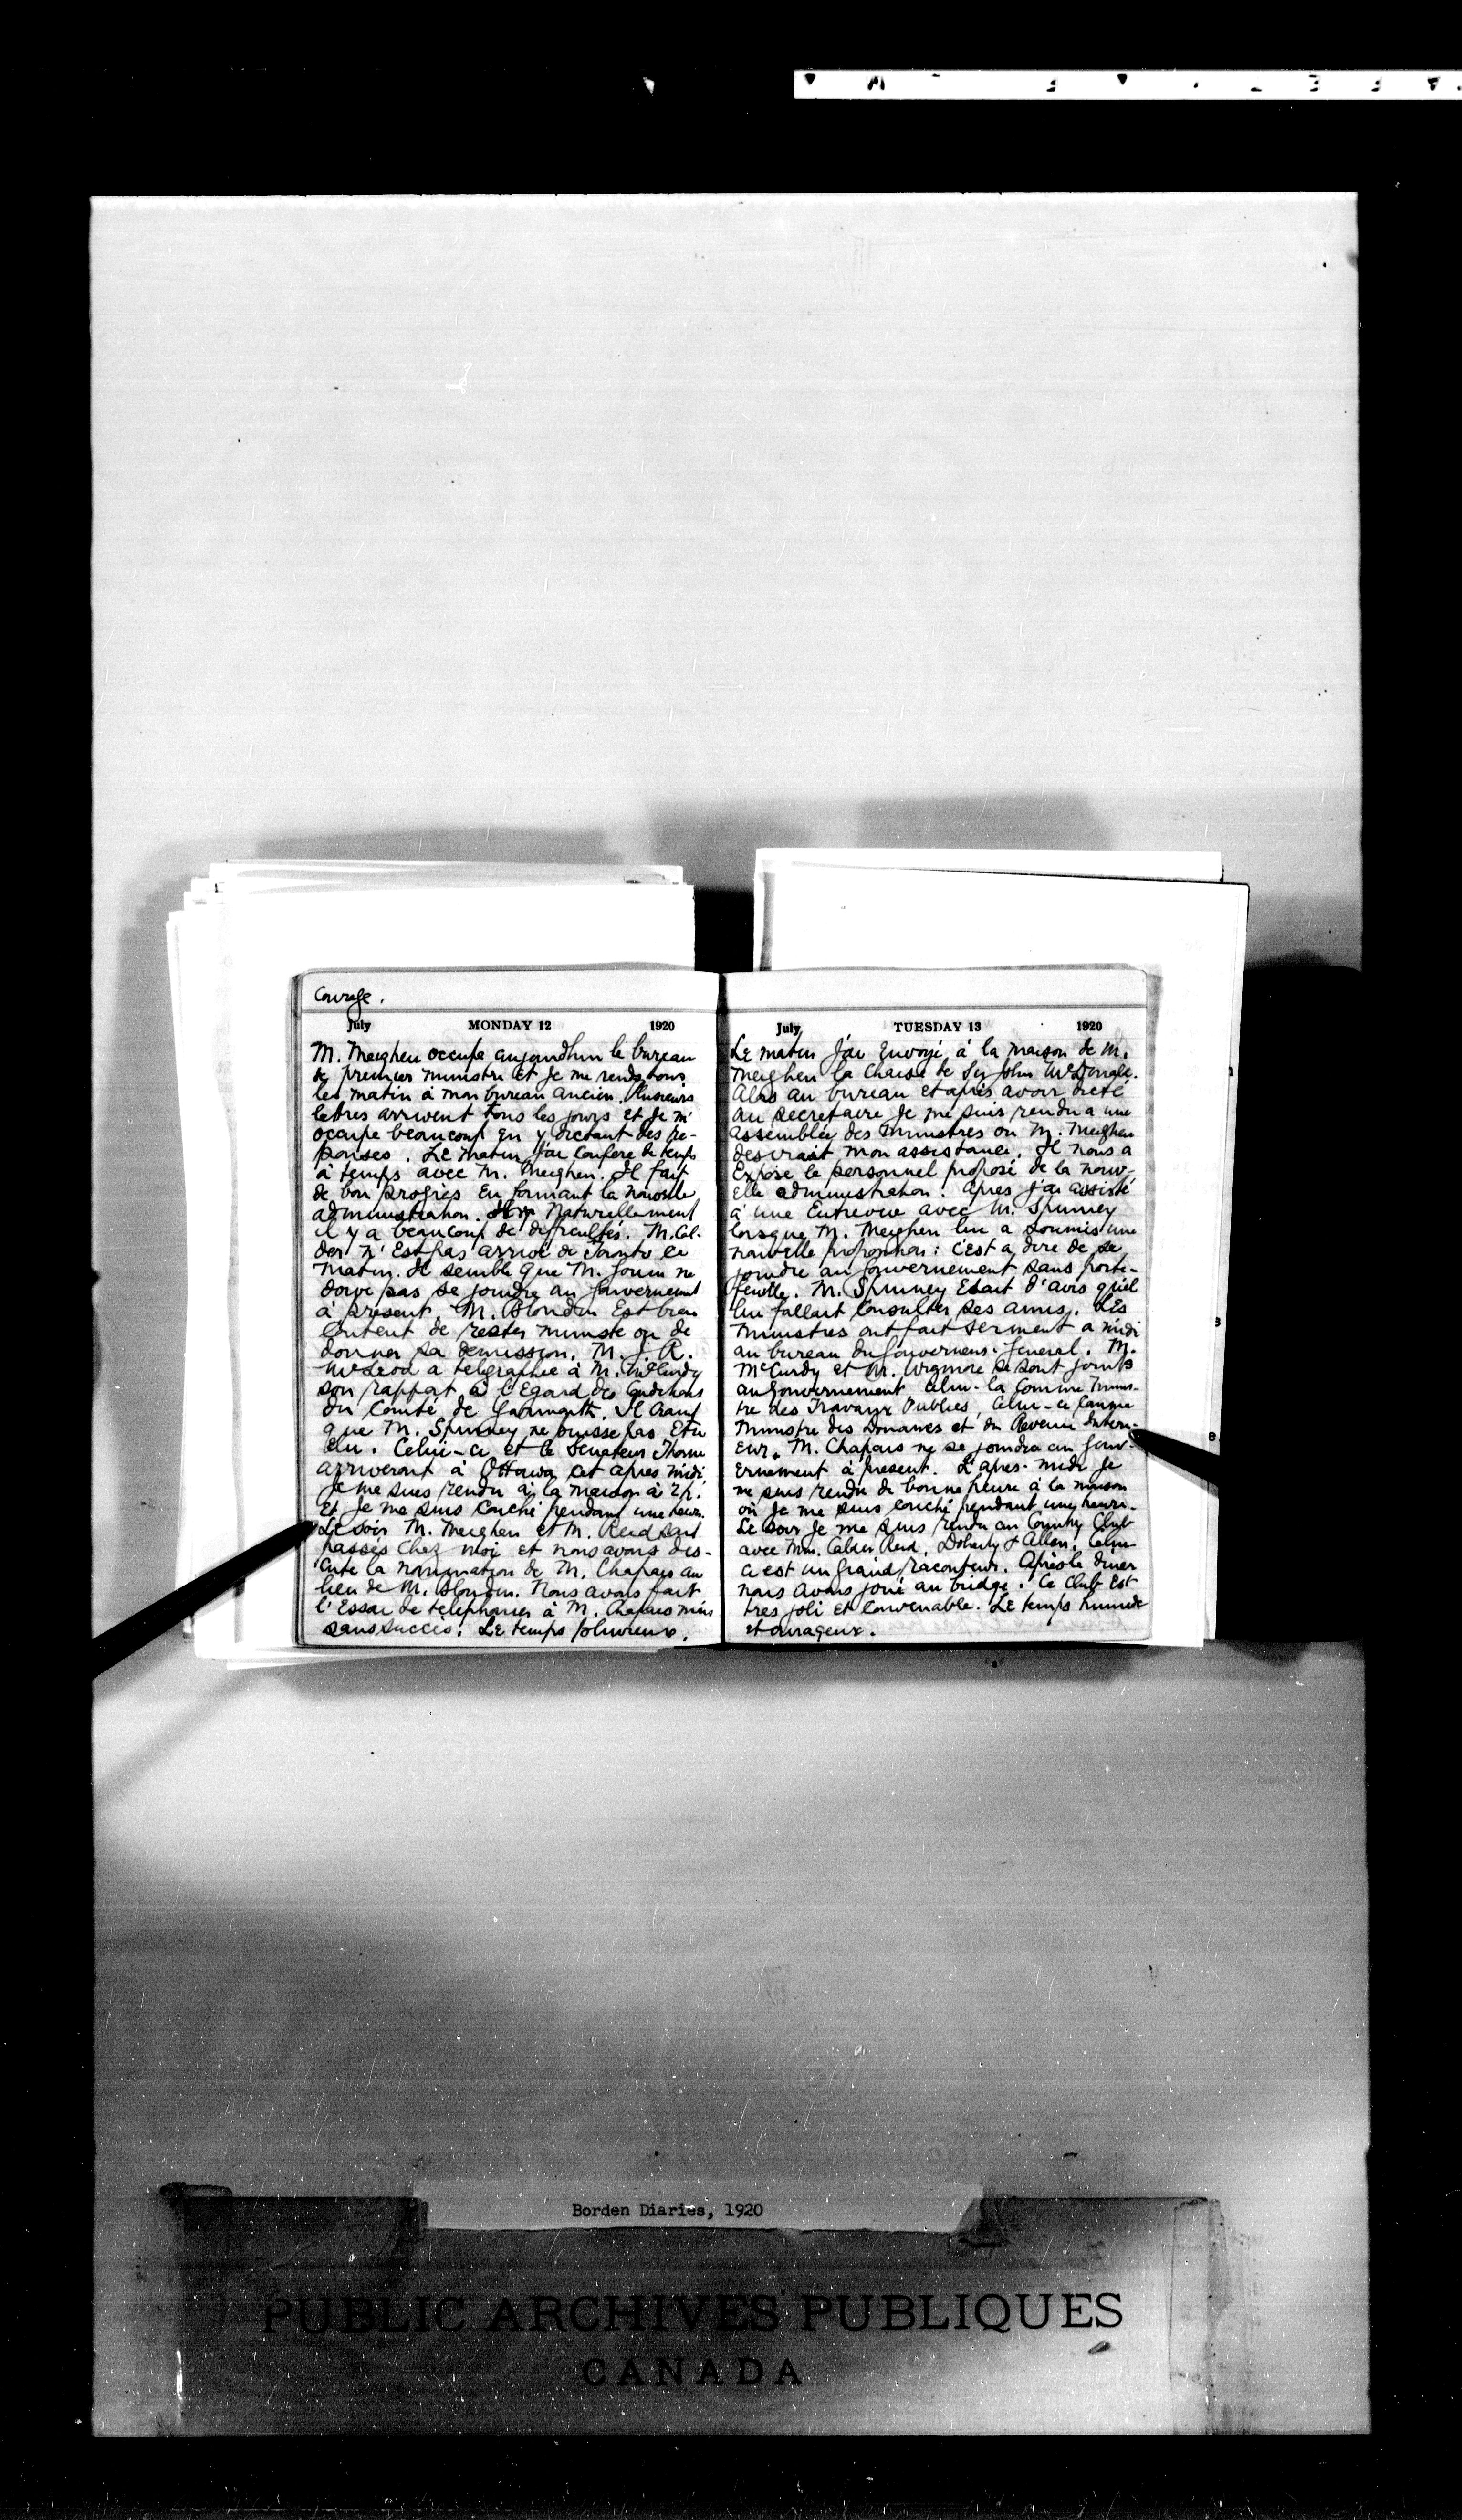 Courage.
July MONDAY 12 1920
M. Meighen occupe aujourdhui le bureau
de premier ministre et je me rends tous
les matin à mon bureau ancien. Plusieurs
lettres arrivent tous les jours et je m'
occupe beaucoup en y dictant des re-
ponses. Le matin j'ai confere de temps
à temps avec M. Meighen. Il fait
de bon progres en formant la nouvelle
administration. Naturellement
il y a beaucoup de difficultés. M. Cal-
der n'est pas arrivé de Toronto ce
matin. Il semble que M. Gouin ne
doive pas se joindre au gouvernement
à present. M. Blondin est bien
content de rester ministe ou de
donner sa demission. M. J. R.
McLeod a telegraphie à M. McCurdy
son rapport à l'egard des conditions
du Comté de Yarmouth. Il craint
que M. Spinney ne puisse pas etre
elu. Celui-ci et le Senateur Thorne
arriveront à Ottawa cet apres midi.
Je me suis rendu à la maison à 2h.
et je me suis couché pendant une heure.
Le soir M. Meighen et M. Reid sont
passés chez moi et nous avons dis-
cute la nomination de M. Chapais au
lieu de M. Blondin. Nous avons fait
l'essai de telephoner à M. Chapais mais
sans succes. Le temps pluvieux.
July TUESDAY 13 1920
Le matin j'ai envoyé à la maison de M.
Meighen la chaise de Sir John McDonald.
Alas au bureau et après avoir dicté
au secretaire je me suis rendu a une
assemblée des ministres ou M. Meighen
desirait mon assistance. Il nous a
exposé le personnel proposé de la nouv-
elle administration. Apres j'ai assisté
à une entrevue avec M. Spinney
lorsque M. Meighen lui a soumis une
nouvelle proposition: c'est a dire de se
joindre au gouvernement sans porte-
feuille. M. Spinney etait d'avis qu'il
lui fallait consulter ses amis. Les
ministres ont fait serment a midi
au bureau du Gouverneur-General. M.
McCurdy et M. Wigmore se sont joints
au gouvernement celui-la comme minis-
tre des Travaux Publics, celui-ci comme
ministre des Douanes et du Revenu Interi-
eur. M. Chapais ne se joindra au gouv-
ernement à present. L'apres-midi je
me suis rendu de bonne heure à la maison
où je me suis couché pendant une heure.
Le soir je me suis rendu au Country Club
avec Mm. Calder Reid, Doherty & Allen. Celui-
ci est un grand raconteur. Après le diner
nous avons joué au bridge. Ce Club est
tres joli et convenable. Le temps humide
et ourageux.
Borden Diaries, 1920
PUBLIC ARCHIVES PUBLIQUES
CANADA